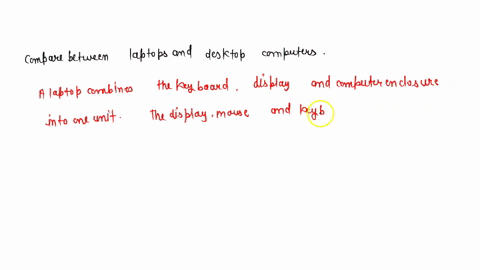 Compare between laptops and desktop computers.
A laptop combines the keyboard, display and computer enclosure
into one unit. The display, mouse and keyb